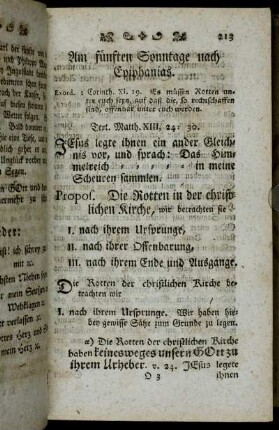 213
Am fünften Sonntage nach
Epiphanias.
Exord. 1 Corinth. XI. 19. Es müssen Rotten un-
ter euch seyn, auf daß die, so rechtschaffen
sind, offenbar unter euch werden.
Text. Matth. XIII. 24-30.
JEsus legte ihnen ein ander Gleich-
niß vor, und sprach: Das Him-
melreich - - - in meine
Scheuren sammlen.
Propos. Die Rotten in der christ-
lichen Kirche, wir betrachten sie
I. nach ihrem Ursprunge,
II. nach ihrer Offenbarung,
III. nach ihrem Ende und Ausgange.
Die Rotten der christlichen Kirche be-
trachten wir
I. nach ihrem Ursprunge. Wir haben hie-
bey gewisse Sätze zum Grunde zu legen.
a) Die Rotten der christlichen Kirche
haben keinesweges unsern GOtt zu
ihrem Urheber. v. 24. JEsus legete
O 3 ihnen